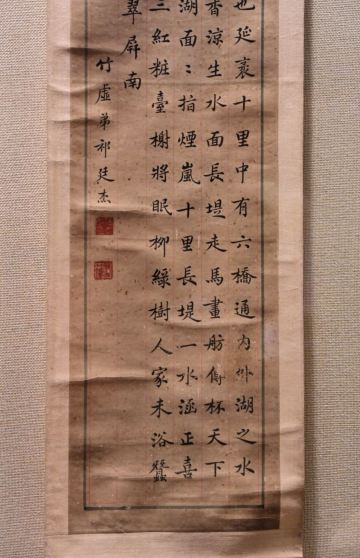 也延袤十里中有六橋通內外湖之水
香涼生水面長堤走馬畫舫傳杯天下
湖面〻指煙嵐十里長堤一水涵正喜
三紅粧臺榭將眠柳綠樹人家未浴蠶
翠屏南
竹虛弟祁廷杰